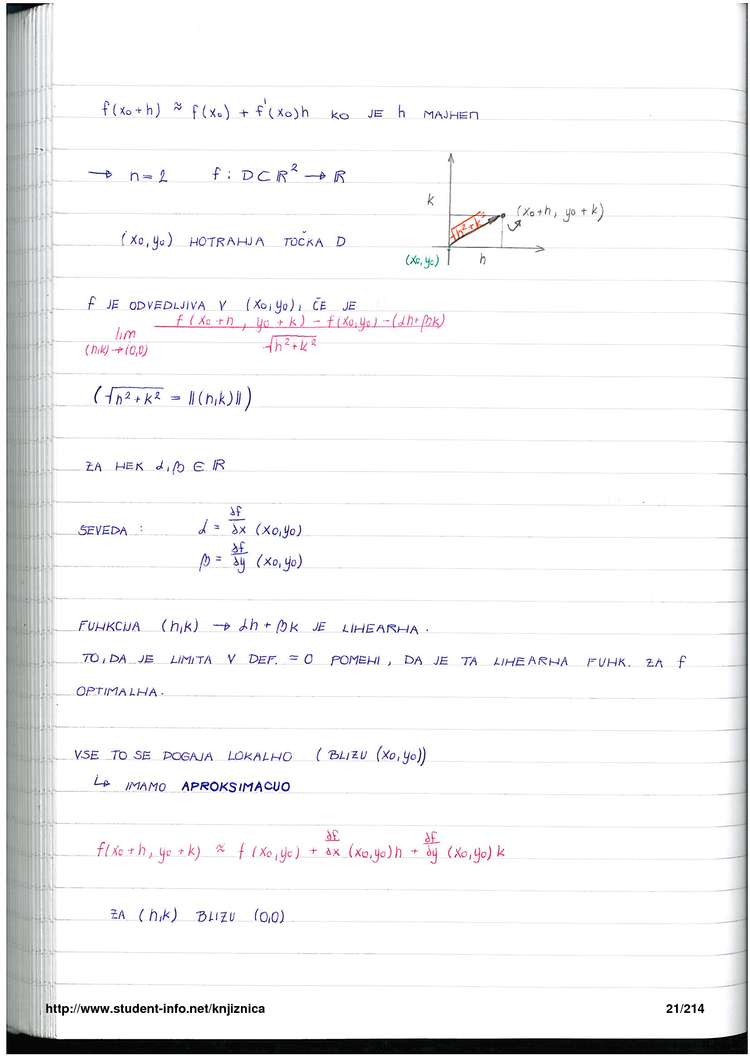 f(x₀+h) ≈ f(x₀) + f'(x₀)h KO JE h MAJHEN
→ n=2 f: D⊂ℝ² → ℝ
k
√h²+k²
(x₀+h, y₀+k)
(x₀,y₀) NOTRANJA TOČKA D
(x₀,y₀)
h
f JE ODVEDLJIVA V (x₀,y₀), ČE JE
lim (h,k)→(0,0) f(x₀+h, y₀+k) - f(x₀,y₀) - (αh+βk) / √h²+k²
(√h²+k² = ||(h,k)||)
ZA NEK α,β ∈ ℝ
SEVEDA : α = ∂f/∂x (x₀,y₀)
β = ∂f/∂y (x₀,y₀)
FUNKCIJA (h,k) → αh + βk JE LINEARNA.
TO, DA JE LIMITA V DEF. = 0 POMENI, DA JE TA LINEARNA FUNK. ZA f
OPTIMALNA.
VSE TO SE DOGAJA LOKALNO (BLIZU (x₀,y₀))
↳ IMAMO APROKSIMACIJO
f(x₀+h, y₀+k) ≈ f(x₀,y₀) + ∂f/∂x (x₀,y₀)h + ∂f/∂y (x₀,y₀)k
ZA (h,k) BLIZU (0,0)
http://www.student-info.net/knjiznica 21/214